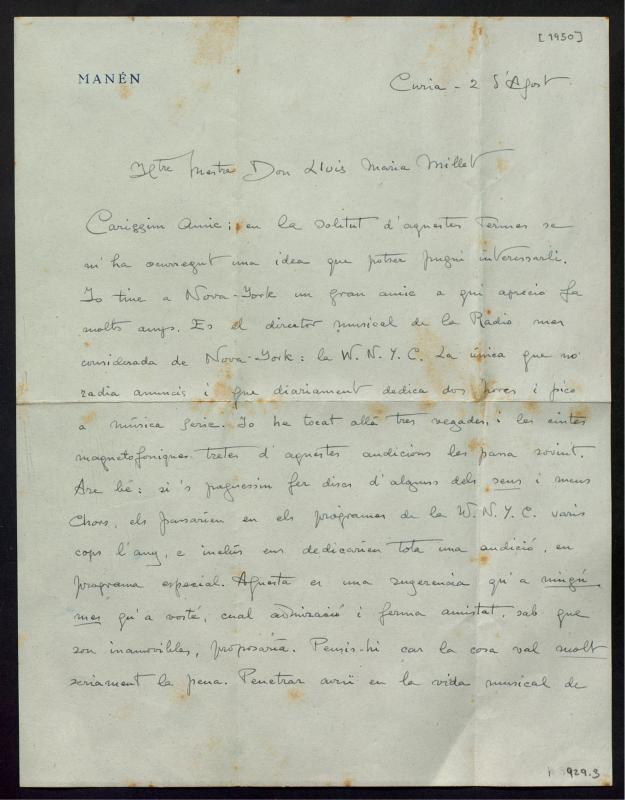 [1950]
MANÉN
Curia - 2 d'Agost
Iltre Mestre Don Lluis Maria Millet
Carissim amic: en la solitut d'aquestes termes se
m'ha ocurregut una idea que potser pugui interessarli.
Jo tinc a Nova-York un gran amic a qui aprecio fa
molts anys. Es el director musical de la Radio mes
considerada de Nova-York: la W.N.Y.C. La única que no
radia anuncis i que diariament dedica dos hores i pico
a música serie. Jo he tocat allá tres vegades i les cintes
magnetofoniques tretes d'aquestes audicions les passa sovint.
Are bé: si's poguessin fer discs d'alguns dels seus i meus
Chors, els passarien en els programes de la W.N.Y.C. varis
cops l'any, e inclús ens dedicarien tota una audició, en
programa especial. Aquesta es una sugerencia qu'a ningú
mes qu'a vosté, cual admiració i ferma amistat sab que
son inamovibles, proposaría. Pensis-hi car la cosa val molt
seriament la pena. Penetrar avui en la vida musical de
929.3